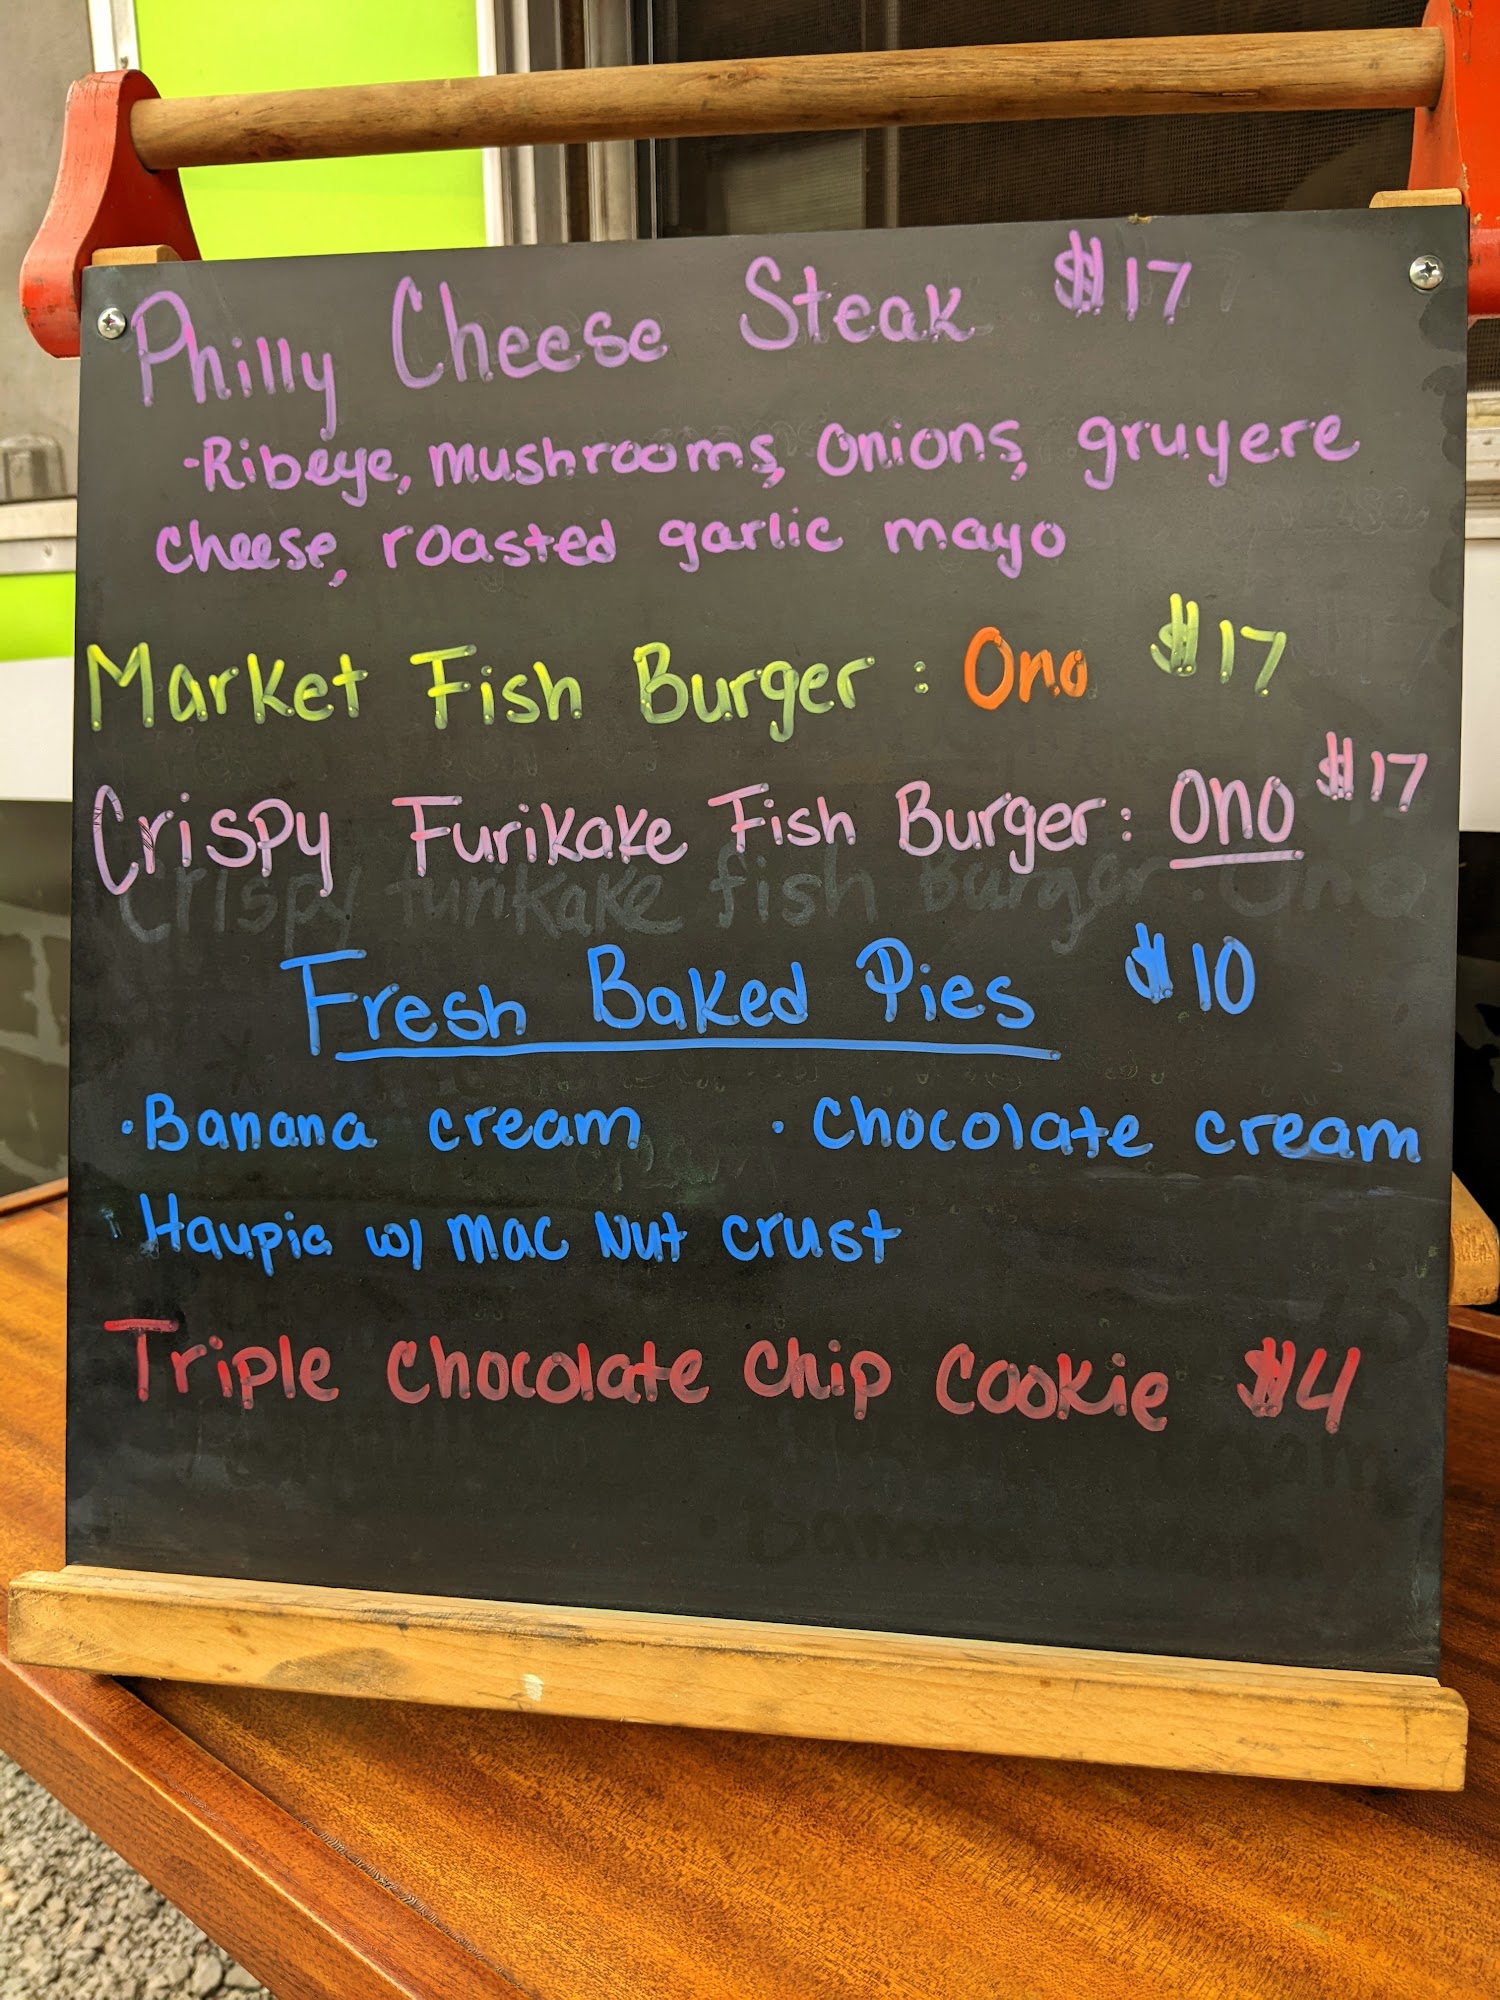 Philly Cheese Steak $17
-Ribeye, mushrooms, onions, gruyere
cheese, roasted garlic mayo
Market Fish Burger : Ono $17
Crispy Furikake Fish Burger: Ono $17
Crispy furikake fish Burger: Ono
Fresh Baked Pies $10
• Banana cream • Chocolate cream
• Haupia w/ mac Nut crust
Triple Chocolate Chip Cookie $4
• Banana cream